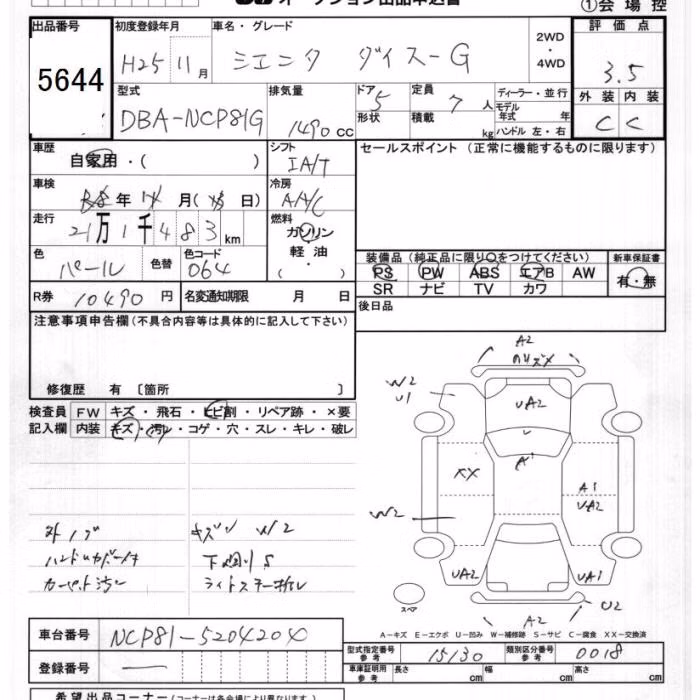 ①会場控
出品番号 初度登録年月 車名・グレード 評価点
5644 H25 11月 シエンタ ダイス-G 2WD・4WD 3.5
型式 排気量 ドア 定員 ディーラー・並行 外装 内装
DBA-NCP81G 1490 CC 5 7人 モデル年式 年 C C
形状 積載 kg ハンドル 左・右
車歴 シフト セールスポイント (正常に機能するものに限ります)
自家用・( ) IA/T
車検 冷房
年 月( 日) A/C
走行 燃料
21万1千483km ガソリン
軽油
( ・ )
色 色替 色コード 装備品 (純正品に限り○をつけてください) 新車保証書
パール 064 PS PW ABS エアB AW 有・無
SR ナビ TV カワ
R券 10490円 名変通知期限 月 日 後日品
注意事項申告欄 (不具合内容等は具体的に記入して下さい)
修復歴 有 〔箇所 〕
検査員 FW キズ・飛石・ヒビ割・リペア跡・×要
記入欄 内装 キズ・汚レ・コゲ・穴・スレ・キレ・破レ
A2
W2
U1
UA2
A1
XX
A1
UA2
W2
UA2
UA1
U2
A2
キズ W2
下廻りS
カーペット汚レ
スペア
A-キズ E-エクボ U-凹み W-補修跡 S-サビ C-腐食 XX-交換済
車台番号 NCP81-5204204
型式指定番号 参考 15130 類別区分番号 参考 0018
登録番号 — 車庫証明用 参考 長さ cm 幅 cm 高さ cm
希望出品コーナー (コーナーは各会場により異なります。)